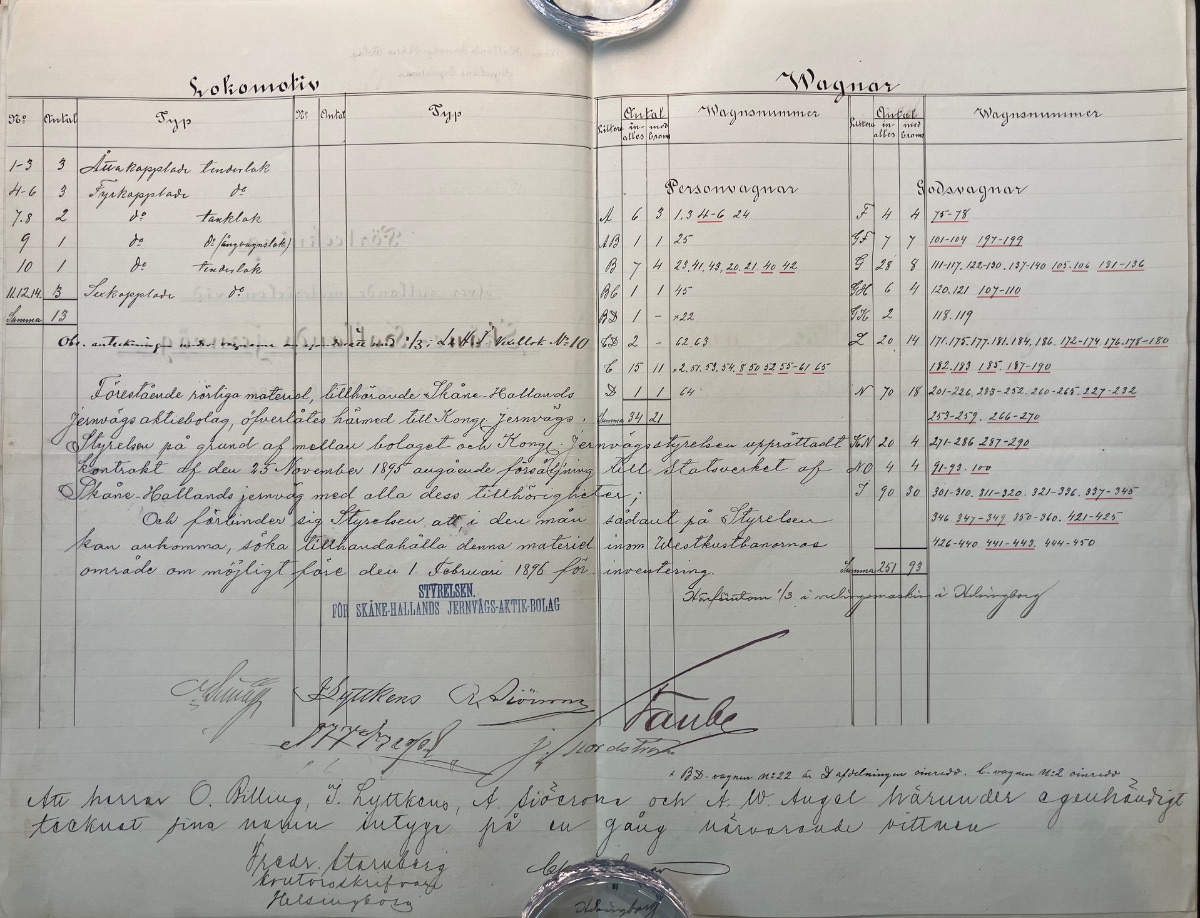 Lokomotiv
Nº Antal Typ Nº Antal Typ
1-3 3 Åttakopplade tenderlok
4-6 3 Fyrkopplade dº
7.8 2 dº tanklok
9 1 dº dº (ångvagnslok)
10 1 dº tenderlok
11.12.14. 3 Sexkopplade dº
Summa 13
Obs. anteckning 1/3 Nº 10
Förestående rörliga material, tillhörande Skåne-Hallands
Jernvägsaktiebolag, öfverlåtes härmed till Kongl. Jernvägs-
Styrelsen på grund af mellan bolaget och Kongl. Jernvägsstyrelsen upprättadt
Kontrakt af den 25 November 1895 angående försäljning till Statsverket af
Skåne-Hallands jernväg med alla dess tillhörigheter;
Och förbinder sig Styrelsen att, i den mån sådant på Styrelsen
kan ankomma, söka tillhandahålla denna materiel inom Westkustbanornas
område om möjligt före den 1 Februari 1896 för inventering.
STYRELSEN.
FÖR SKÅNE-HALLANDS JERNVÄGS-AKTIE-BOLAG
Wagnar
Littera Antal in alles med broms Wagnsnummer Littera Antal in alles med broms Wagnsnummer
Personvagnar
A 6 3 1.3 4-6 24
AB 1 1 25
B 7 4 23.41.43. 20.21.40 42
BC 1 1 45
BD 1 - ×22
CD 2 - 62.63
C 15 11 2.51.53.54. 8 50 52 55-61 65
D 1 1 64
Summa 34 21
Godsvagnar
F 4 4 75-78
GF 7 7 101-104 197-199
G 28 8 111-117. 122-130. 137-140 105.106 131-136
GH 6 4 120.121 107-110
GK 2 118.119
L 20 14 171.175.177.181.184.186. 172-174 176.178-180
182.183 185. 187-190
N 70 18 201-226. 233-252. 260-265. 227-232
253-259. 266-270
KN 20 4 271-286 287-290
NO 4 4 91-93. 100
I 90 30 301-310. 311-320. 321-336. 337-345
346 347-349 350-360. 421-425
426-440 441-443. 444-450
Summa 251 93
Härförutom 1/3 i i Helsingborg
J Lyttkens
Taube
J. Nordström
× BD-vagnen Nº 22 är D afdelningen oinredd. C. vagnen Nº 2 oinredd
Att herrar O. Billing, J. Lyttkens, A. Siöcrona och A. W. Angel härunder egenhändigt
tecknat sina namn intyga på en gång närvarande vittnen
Fredr. Starnberg
Kontorsskrifvare
Helsingborg
Helsingborg